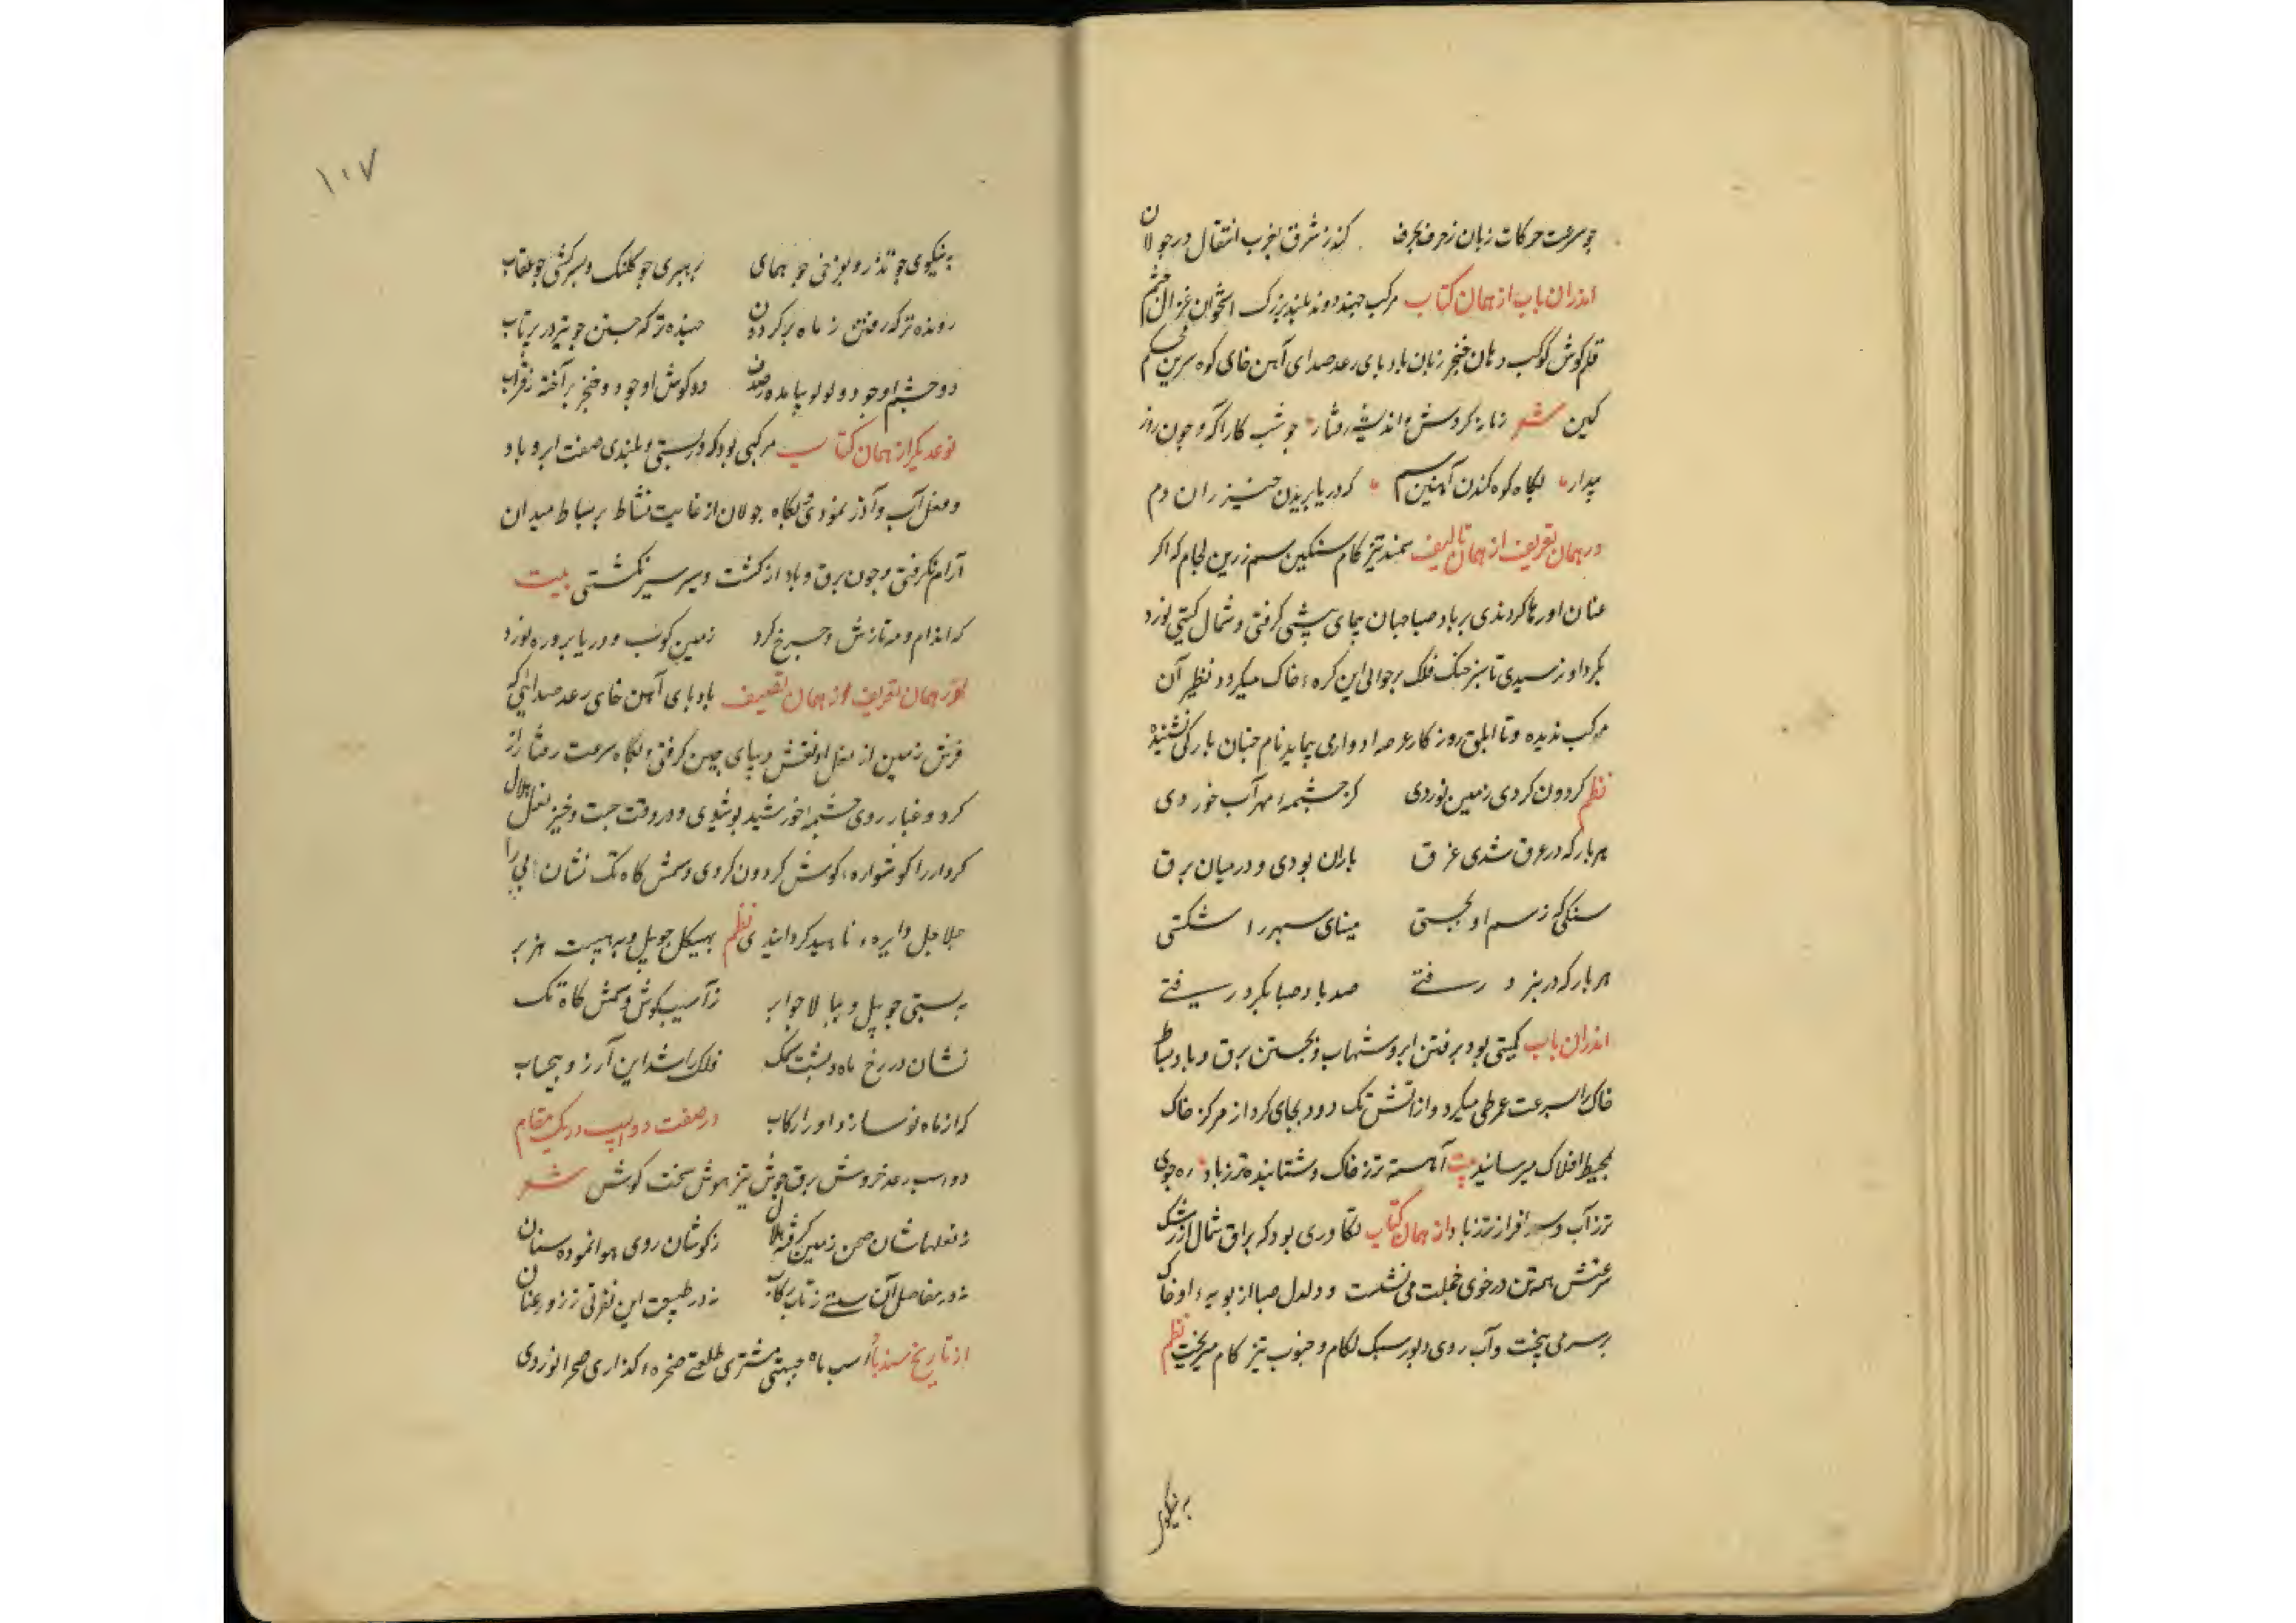 چو سرعت حرکات زبان ز حرف بحرف کند ز شرق بغرب انتقال در جولان
اندران باب از همان کتاب مرکب جهنده دونده بلند بزرگ استخوان غزال چشم
قلم کوش کوکب دهان خنجر زبان باد پای رعد صدای آهن خای کوه سرین
کین شعر زمانه کردش و اندیشه رفتار چو شب کاراکه و چون روز
بیدار بگاه کوه کندن آهنین سم که دریا بریدن خیزران دم
در همان تعریف از همان تالیف سمند تیز کام سنکین سم زرین لجام که اکر
عنان او رها کردندی بر باد صبا جهان پیمای پیشی کرفتی و شمال کیتی نورد
بکرد او نرسیدی تا سبز خنک فلک بر حوالی این کرهٔ خاک میکردد نظیر آن
مرکب ندیده و تا ابلق روزکار عرصه ادوار می پیماید نام چنان بارکی نشنیده
نظم کردون کردی زمین نوردی کز چشمهٔ مهر آب خوردی
هر بار که در عرق شدی غرق باران بودی و در میان برق
سنکی که ز سم او بجستی مینای سپهر را شکستی
هر بار که در نبرد رفتی صد باد صبا بکرد رفتی
اندران باب کمیتی بود برفتن ابر و شهاب و بجستن برق و باد بساط
خاک را بسرعت طی میکرد و از آتش تک دود بجای کرد از مرکز خاک
بمحیط افلاک میرسانید بیت آهسته تر ز خاک و شتابنده تر ز باد ره جوی
تر ز آب و سرافراز تر ز باد از همان کتاب تکاوری بود که براق شمال از رشک
سرعتش همه تن در خوی خجلت می نشست و دلدل صبا از پویهٔ او خاک
بر سر می بیخت و آب روی دبور سبک لکام و جنوب تیز کام میریخت نظم
به نیکوی
۱۰۷
به نیکوی چو تذرو و بفرخی چو همای برهبری چو کلنک و بسرکشی چو عقاب
رونده تر که رفتن ز ماه بر کردون جهنده تر که جستن چو تیر در پرتاب
دو چشم او چو دو لولو میانهٔ صدف دو کوش او چو دو خنجر بر آخته ز قراب
نوع دیکر از همان کتاب مرکبی بود که در پستی و بلندی صفت ابر و باد
و فعل آب و آذر نمودی و بکاه جولان از غایت نشاط بر بساط میدان
آرام نکرفتی و چون برق و باد از کشت و سیر سیر نکشتی بیت
که اندام و مه تازش و چرخ کرد زمین کوب و دریا بر و ره نورد
در همان تعریف از همان تصنیف باد پای آهن خای رعد صدائی که
فرش زمین از نعل او نقش دیبای چین کرفتی و بکاه سرعت رفتار از
کرد و غبار روی چشمهٔ خورشید بپوشیدی و در وقت جست و خیز نعل هلال
کردار را کوشوارهٔ کوش کردون کردی و سمش کاه تک نشان پی را
جلاجل دایرهٔ ناهید کردانیدی نظم بهیکل چو پیل و بهیبت هزبر
به پستی چو پیل و ببالا چو ابر ز آسیب کوش و سمش کاه تک
نشان در رخ ماه و پشت سمک فلک را شد این آرزو بیحساب
که از ماه نو سازد او را رکاب در صفت دو اسپ در یک مقام
دو اسب رعد خروش برق جوش تیز هوش سخت کوش شعر
ز نعلهاشان صحن زمین کرفته هلال ز کوشان روی هوا نموده سنان
نه در مفاصل آن سستی ز تاب رکاب نه در طبیعت این نفرتی ز زور عنان
از تاریخ سندباد اسب ماه جبهتی مشتری طلعتی صخره کذاری صحرا نوردی